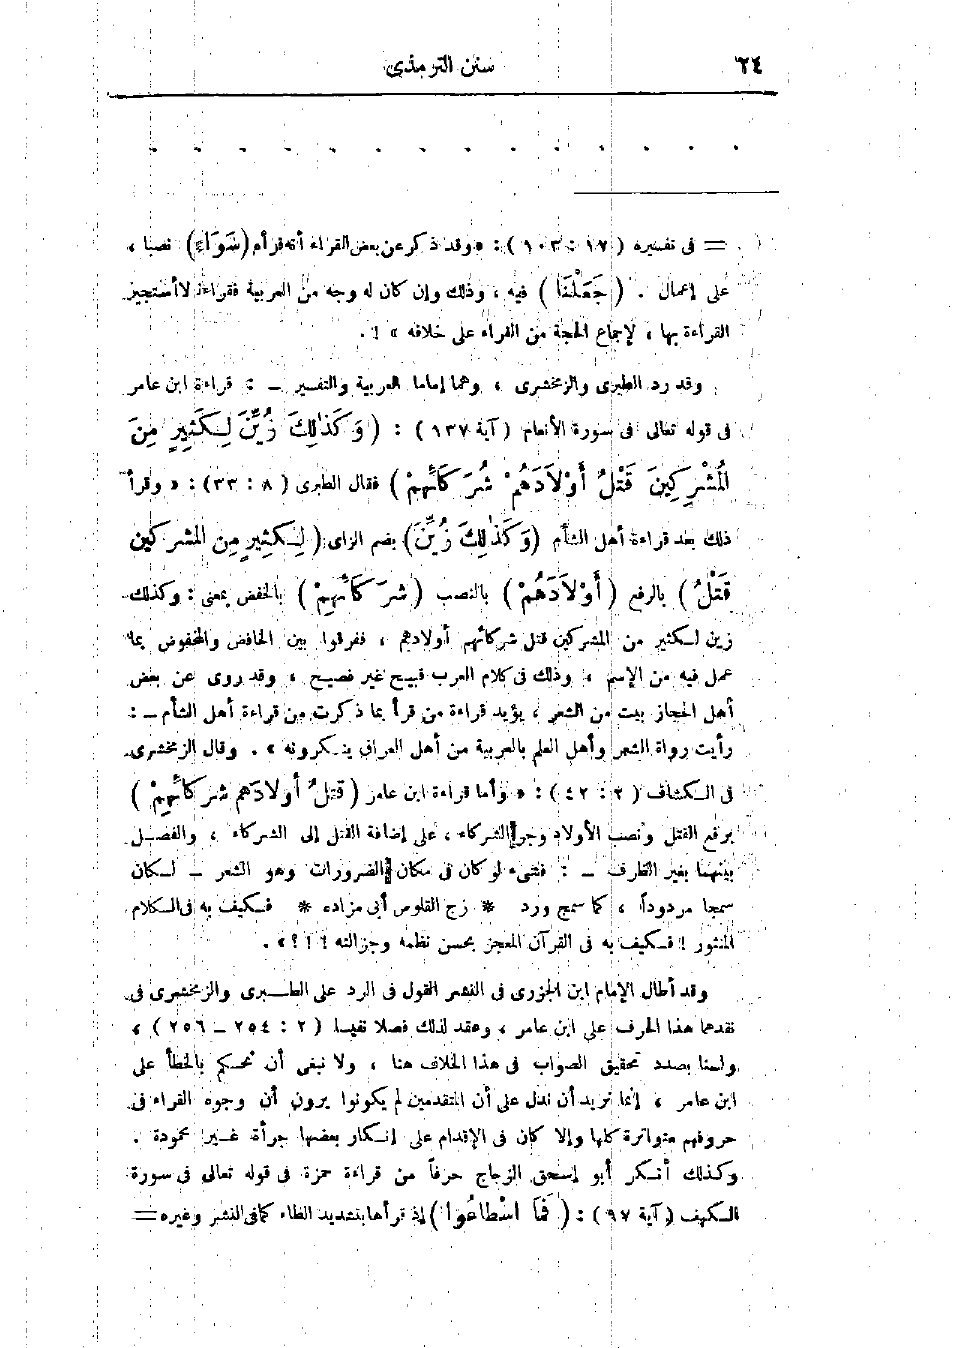 ٢٤ سنن الترمذى
= فى تفسيره ( ١٧ : ١٠٣ ) : « وقد ذكر عن بعض القراء أنه قرأه (سَوَاءً) نصبا ،
على إعمال . ( جَعَلْنَا ) فيه ، وذلك وإن كان له وجه من العربية فقراءة لا أستجيز
القراءة بها ، لإجماع الحجة من القراء على خلافه » ! .
وقد رد الطبرى والزمخشرى ، وهما إماما العربية والتفسير ــ : قراءة ابن عامر
فى قوله تعالى فى سورة الأنعام ( آية ١٣٧ ) : ( وَكَذٰلِكَ زُيِّنَ لِكَثِيرٍ مِنَ
الْمُشْرِكِينَ قَتْلُ أَوْلَادَهُمْ شُرَكَائِهِمْ ) فقال الطبرى ( ٨ : ٣٣ ) : « وقرأ
ذلك بعد قراءة أهل الشأم ( وَكَذٰلِكَ زُيِّنَ ) بضم الزاى ( لِكَثِيرٍ مِنَ المشركين
قَتْلُ ) بالرفع ( أَوْلَادَهُمْ ) بالنصب ( شُرَكَائِهِمْ ) بالخفض بمعنى : وكذلك
زين لكثير من المشركين قتل شركائهم أولادهم ، ففرقوا بين الخافض والمخفوض بما
عمل فيه من الإسم ، وذلك فى كلام العرب قبيح غير فصيح ، وقد روى عن بعض
أهل الحجاز بيت من الشعر ، يؤيد قراءة من قرأ بما ذكرت من قراءة أهل الشأم ــ :
رأيت رواة الشعر وأهل العلم بالعربية من أهل العراق ينكرونه » . وقال الزمخشرى
فى الكشاف ( ٢ : ٤٢ ) : « وأما قراءة ابن عامر ( قتلُ أولادَهم شركائِهِمْ )
برفع القتل ونصب الأولاد وجر الشركاء ، على إضافة القتل إلى الشركاء ، والفصل
بينهما بغير الظرف ــ : فشىء لو كان فى مكان الضرورات وهو الشعر ــ لكان
سمجا مردوداً ، كما سمج ورد * زج القلوص أبى مزاده * فكيف به فى الكلام
المنثور ! فكيف به فى القرآن المعجز بحسن نظمه وجزالته ! ! ؟ » .
وقد أطال الإمام ابن الجزرى فى النشر القول فى الرد على الطبرى والزمخشرى فى
نقدهما هذا الحرف على ابن عامر ، وعقد لذلك فصلا نفيسا ( ٢ : ٢٥٤ ــ ٢٥٦ ) ،
ولسنا بصدد تحقيق الصواب فى هذا الخلاف هنا ، ولا نبغى أن نحكم بالخطأ على
ابن عامر ، إنما نريد أن ندل على أن المتقدمين لم يكونوا يرون أن وجوه القراء فى
حروفهم متواترة كلها وإلا كان فى الإقدام على إنكار بعضها جرأة غير محمودة .
وكذلك أنكر أبو إسحق الزجاج حرفاً من قراءة حمزة فى قوله تعالى فى سورة
الكهف ( آية ٩٧ ) : ( فَمَا اسْطاعُوا ) إذ قرأها بتشديد الطاء كما فى النشر وغيره =